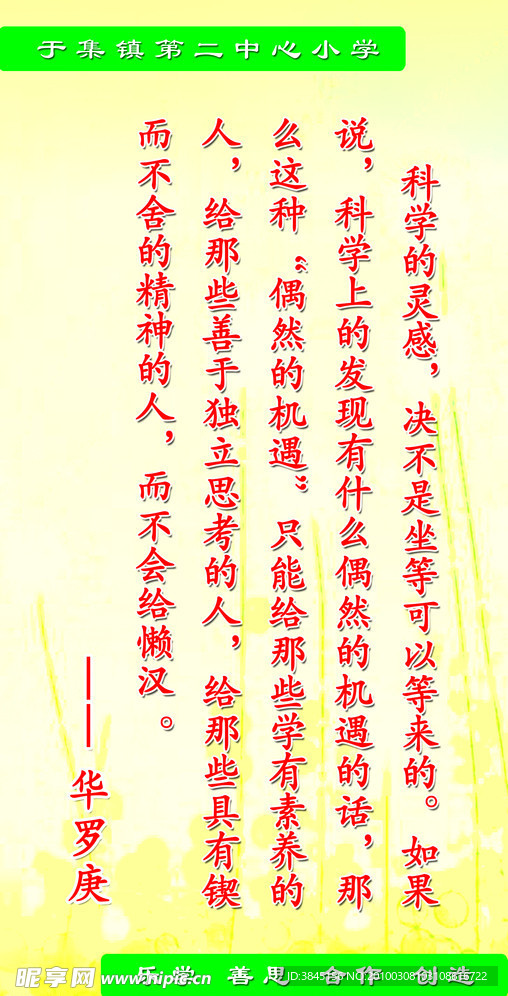 于集镇第二中心小学
科学的灵感，决不是坐等可以等来的。如果
说，科学上的发现有什么偶然的机遇的话，那
么这种“偶然的机遇”只能给那些学有素养的
人，给那些善于独立思考的人，给那些具有锲
而不舍的精神的人，而不会给懒汉。
——华罗庚
乐学 善思 合作 创造
昵享网 www.nipic.cn